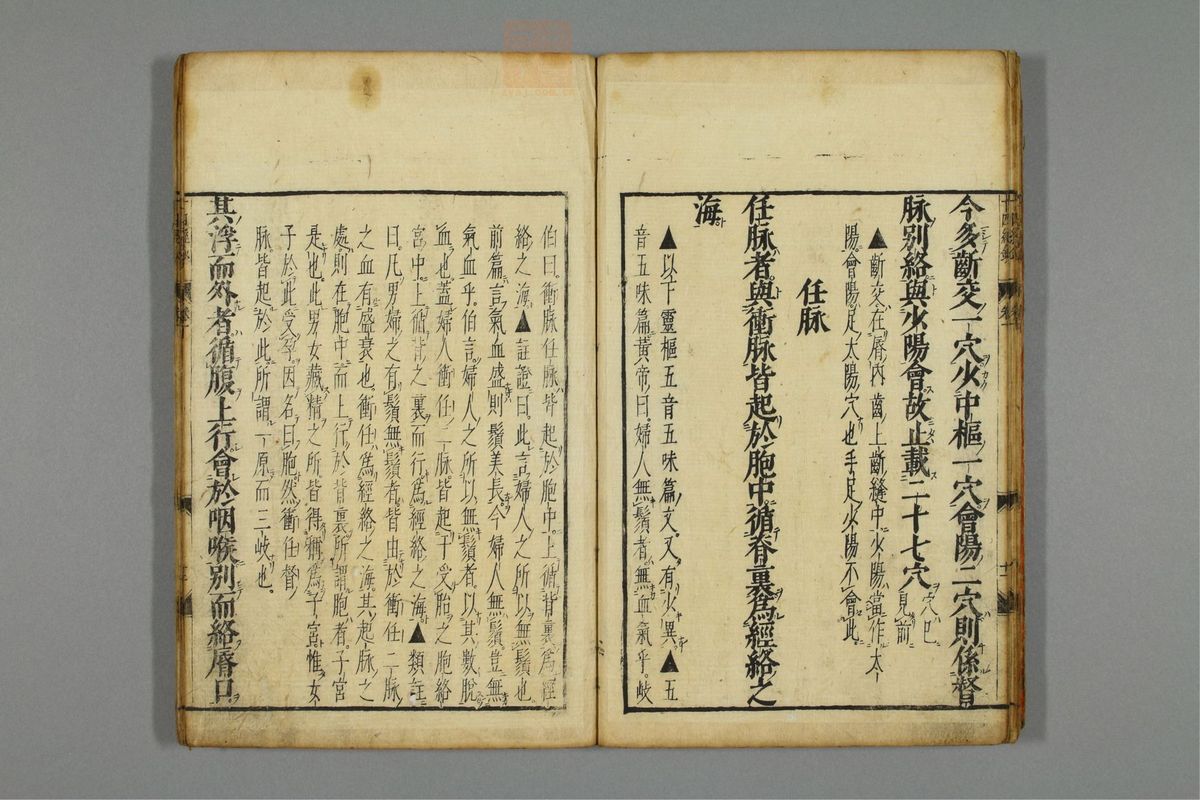 今多斷交一穴少中樞一穴會陽二穴則係督
脉別絡與少陽會故止載二十七穴 穴已見前
▲斷交在脣內齒上斷縫中少陽當作太
陽會陽足太陽穴也手足少陽不會此
任脉
任脉者與衝脉皆起於胞中循脊裏爲經絡之
海
▲以下靈樞五音五味篇文又有少異▲五
音五味篇黃帝曰婦人無鬚者無血氣乎岐
伯曰衝脉任脉皆起於胞中上循背裏爲經
絡之海▲註證曰此言婦人之所以無鬚也
前篇言氣血盛則鬚美長今婦人無鬚豈無
氣血乎伯言婦人之所以無鬚者以其數脫
血也蓋婦人衝任二脉皆起于受胎之胞絡
宮中上循背之裏而行爲經絡之海▲類註
曰凡男婦之有鬚無鬚者皆由於衝任二脉
之血有盛衰也衝任爲經絡之海其起脉之
處則在胞中而上行於背裏所謂胞者子宮
是也此男女藏精之所皆得稱爲子宮惟女
子於此受孕因名曰胞然衝任督
脉皆起於此所謂一原而三岐也
其浮而外者循腹上行會於咽喉別而絡脣口